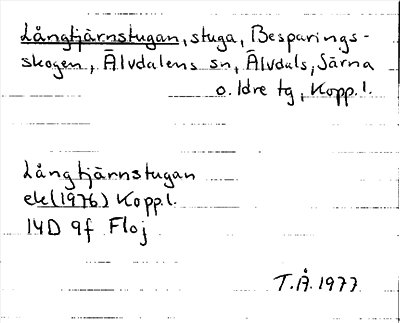 Långtjärnstugan, stuga, Besparings-
skogen, Älvdalens sn, Älvdals, Särna
o. Idre tg, Kopp. l.
Långtjärnstugan
ek (1976) Kopp. l.
14D 9f Floj
T.Å. 1977